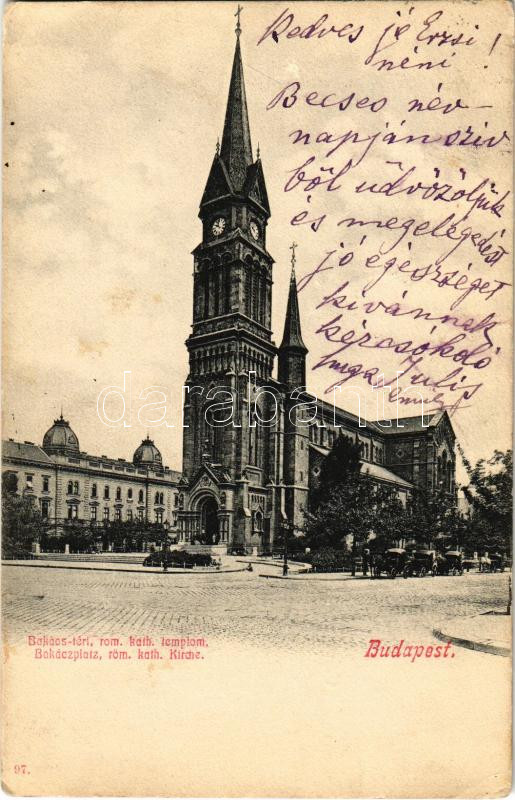 Kedves jó Erzsi
néni!
Becses név-
napján sziv
ből üdvözöljük
és megelégedést
jó egészséget
kivánnak
kézcsókoló
huga Julis
darabanth
Bakács-téri, rom. kath. templom.
Bakáczplatz, röm. kath. Kirche.
Budapest.
97.